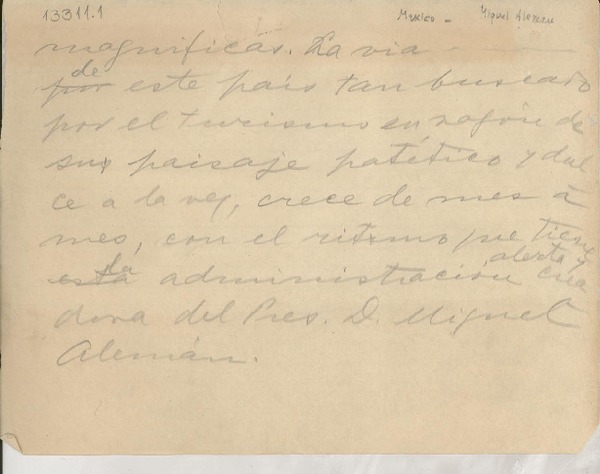 13311.1 Mexico - Miguel Aleman
magnificas. La via
de
por este país tan buscado
por el turismo en razón de
sus paisaje patético y dul
ce a la vez, crece de mes a
mes, con el ritmo que tiene
la alerta y
esta administración crea
dora del Pres. D. Miguel
Alemán.